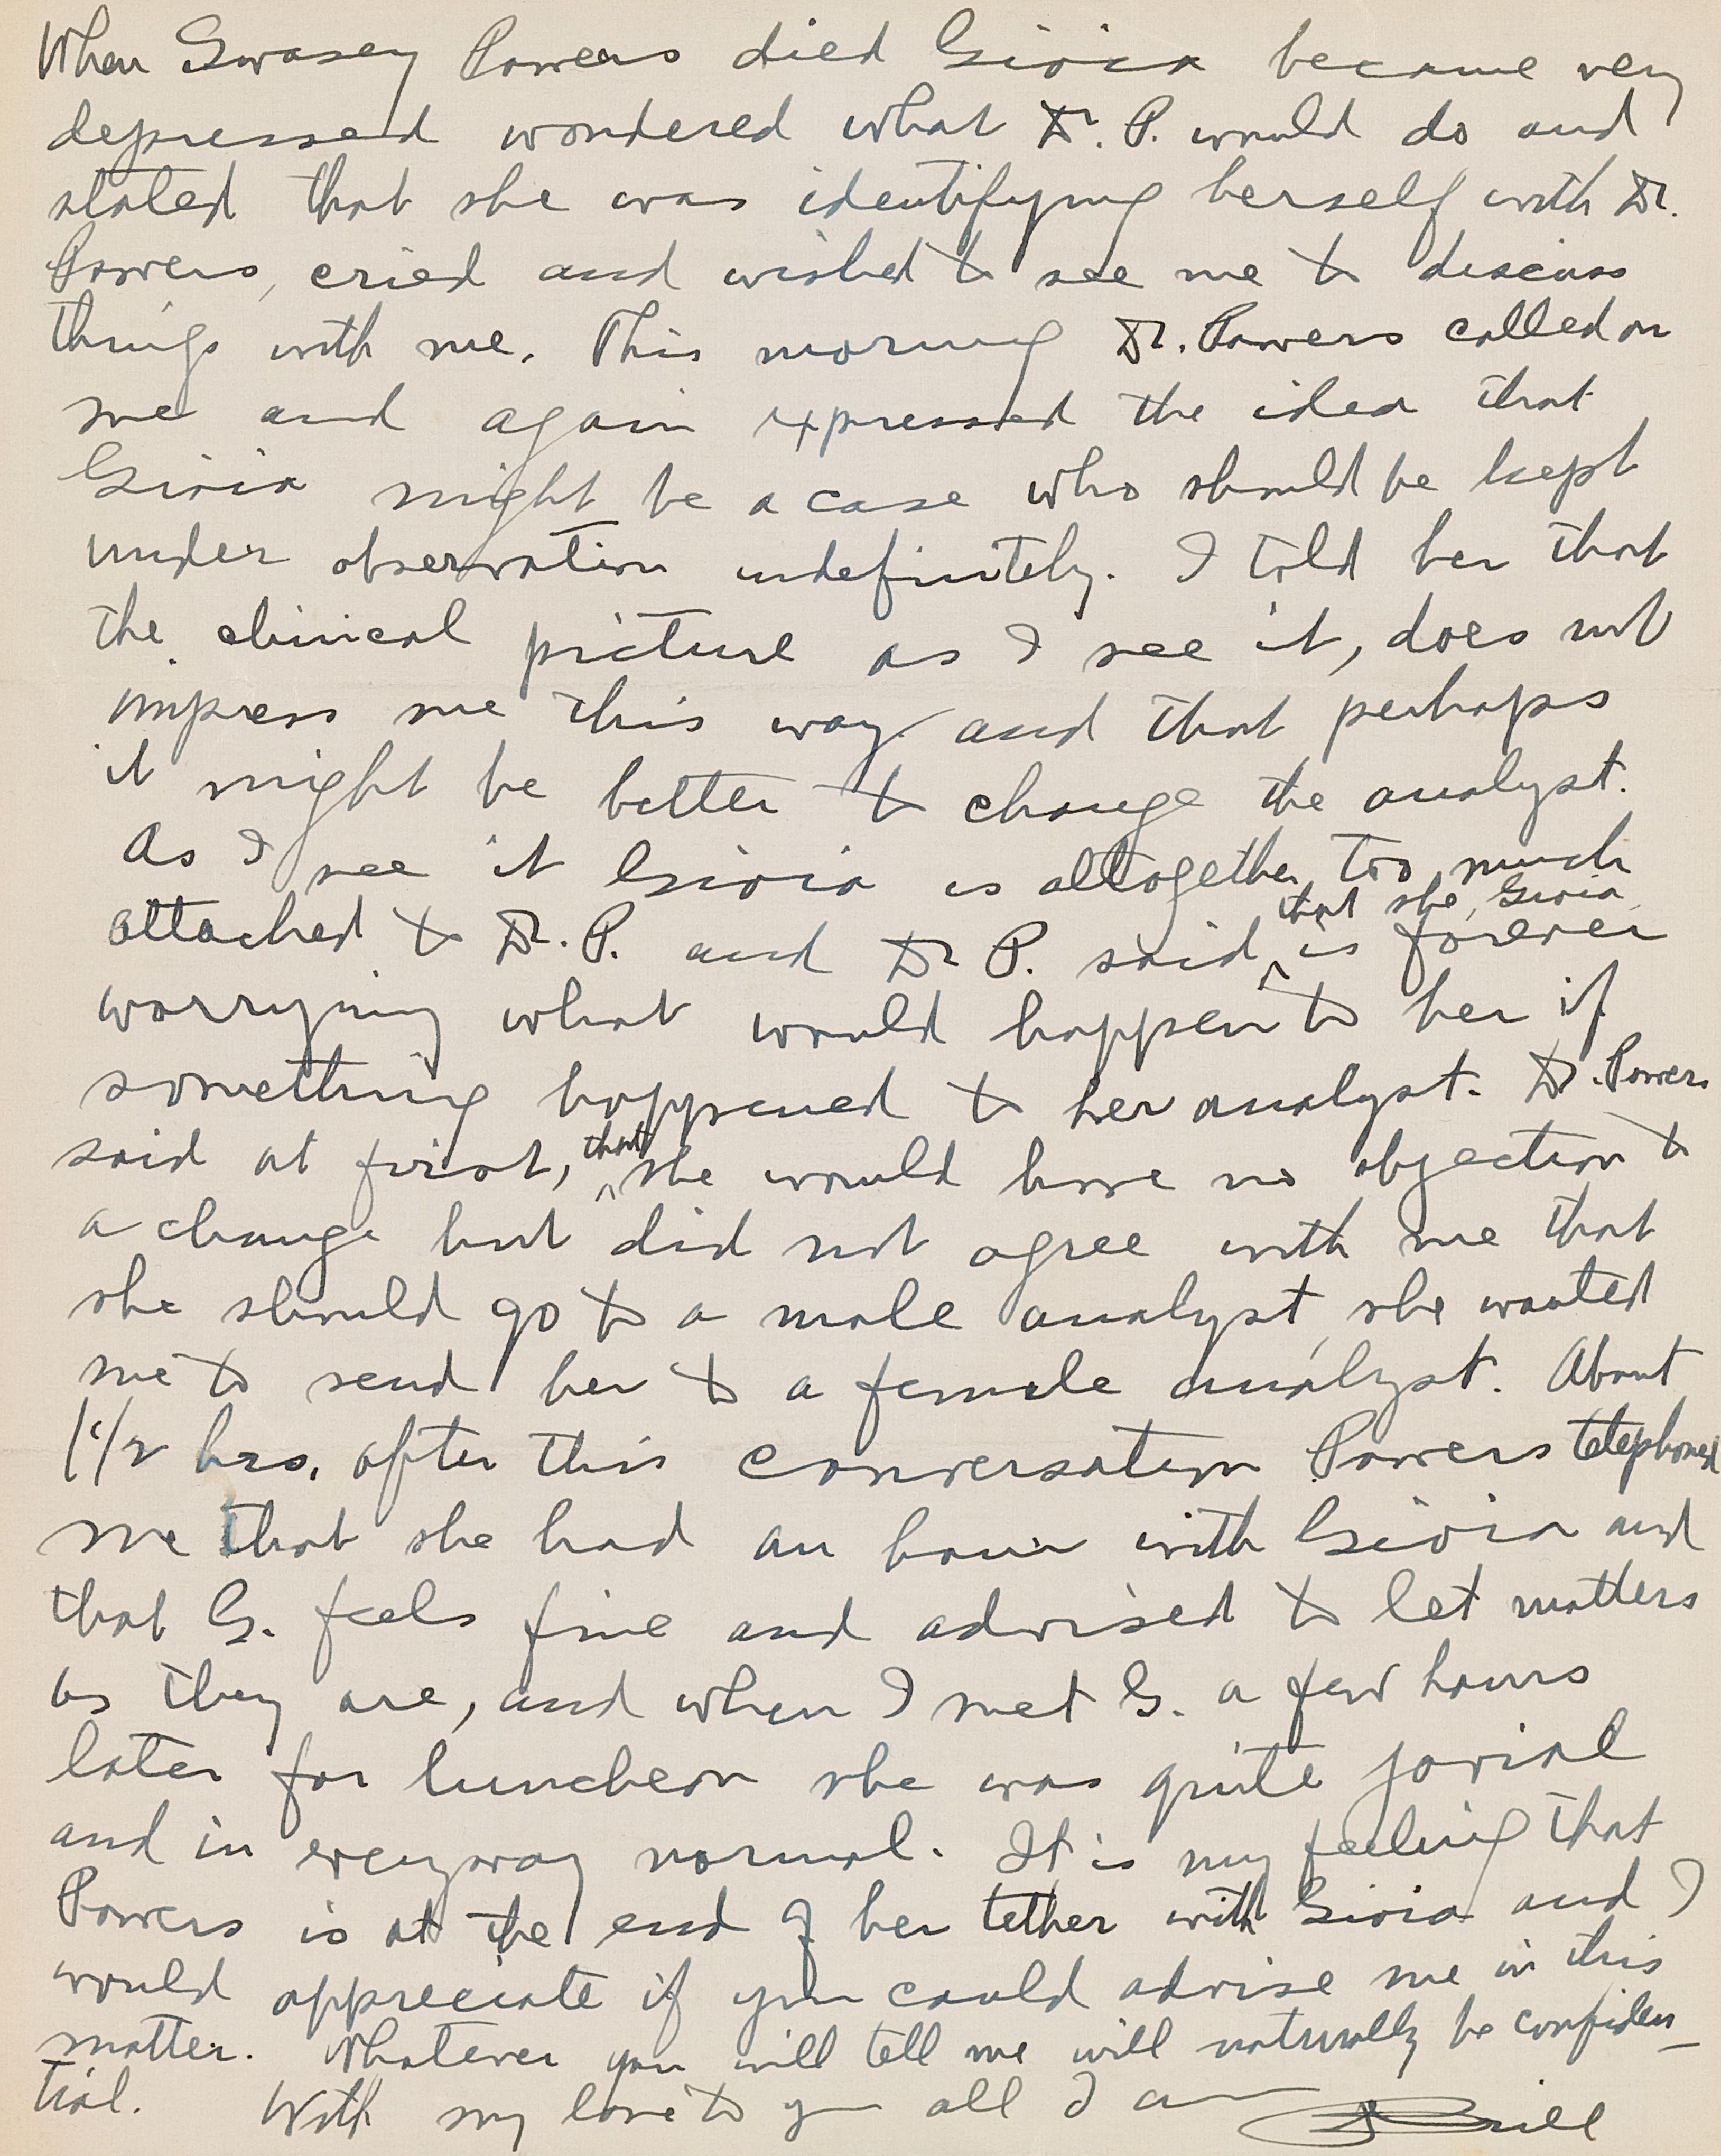 When Swasey Powers died Gioia became very
depressed wondered what Dr. P. would do and
stated that she was identifying herself with Dr.
Powers, cried and wished to see me to discuss
things with me. This morning Dr. Powers called on
me and again expressed the idea that
Gioia might be a case who should be kept
under observation indefinitely. I told her that
the clinical picture as I see it, does not
impress me this way and that perhaps
it might be better to change the analyst.
As I see it Gioia is altogether too much
attached to Dr. P. and Dr P. said that she, Gioia, is forever
worrying what would happen to her if
something happened to her analyst. Dr. Powers
said at first, that she would have no objection to
a change but did not agree with me that
she should go to a male analyst, she wanted
me to send her to a female analyst. About
1 1/2 hrs. after this conversation Powers telephoned
me that she had an hour with Gioia and
that G. feels fine and advised to let matters
as they are, and when I met G. a few hours
later for luncheon she was quite jovial
and in everyway normal. It is my feeling that
Powers is at the end of her tether with Gioia and I
would appreciate if you could advise me in this
matter. Whatever you will tell me will naturally be confiden-
tial. With my love to you all I am Brill